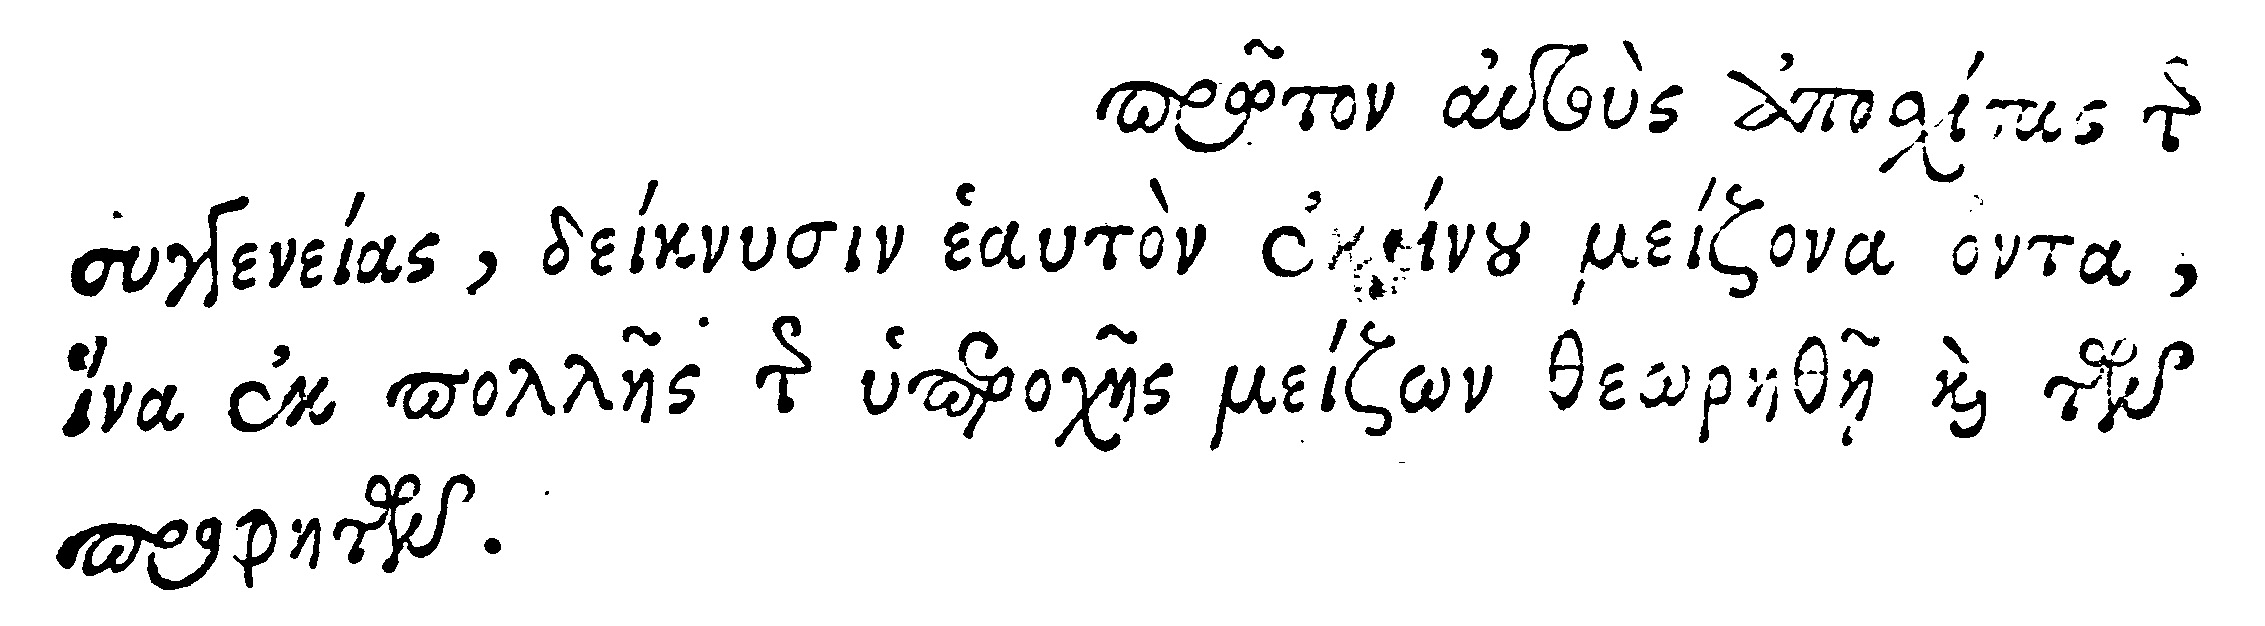 πρῶτον αὐτοὺς ἀποσχίσας τῆς
συγγενείας, δείκνυσιν ἑαυτὸν ἐκείνου μείζονα ὄντα,
ἵνα ἐκ πολλῆς τῆς ὑπεροχῆς μείζων θεωρηθῇ καὶ τῶν
προφητῶν.